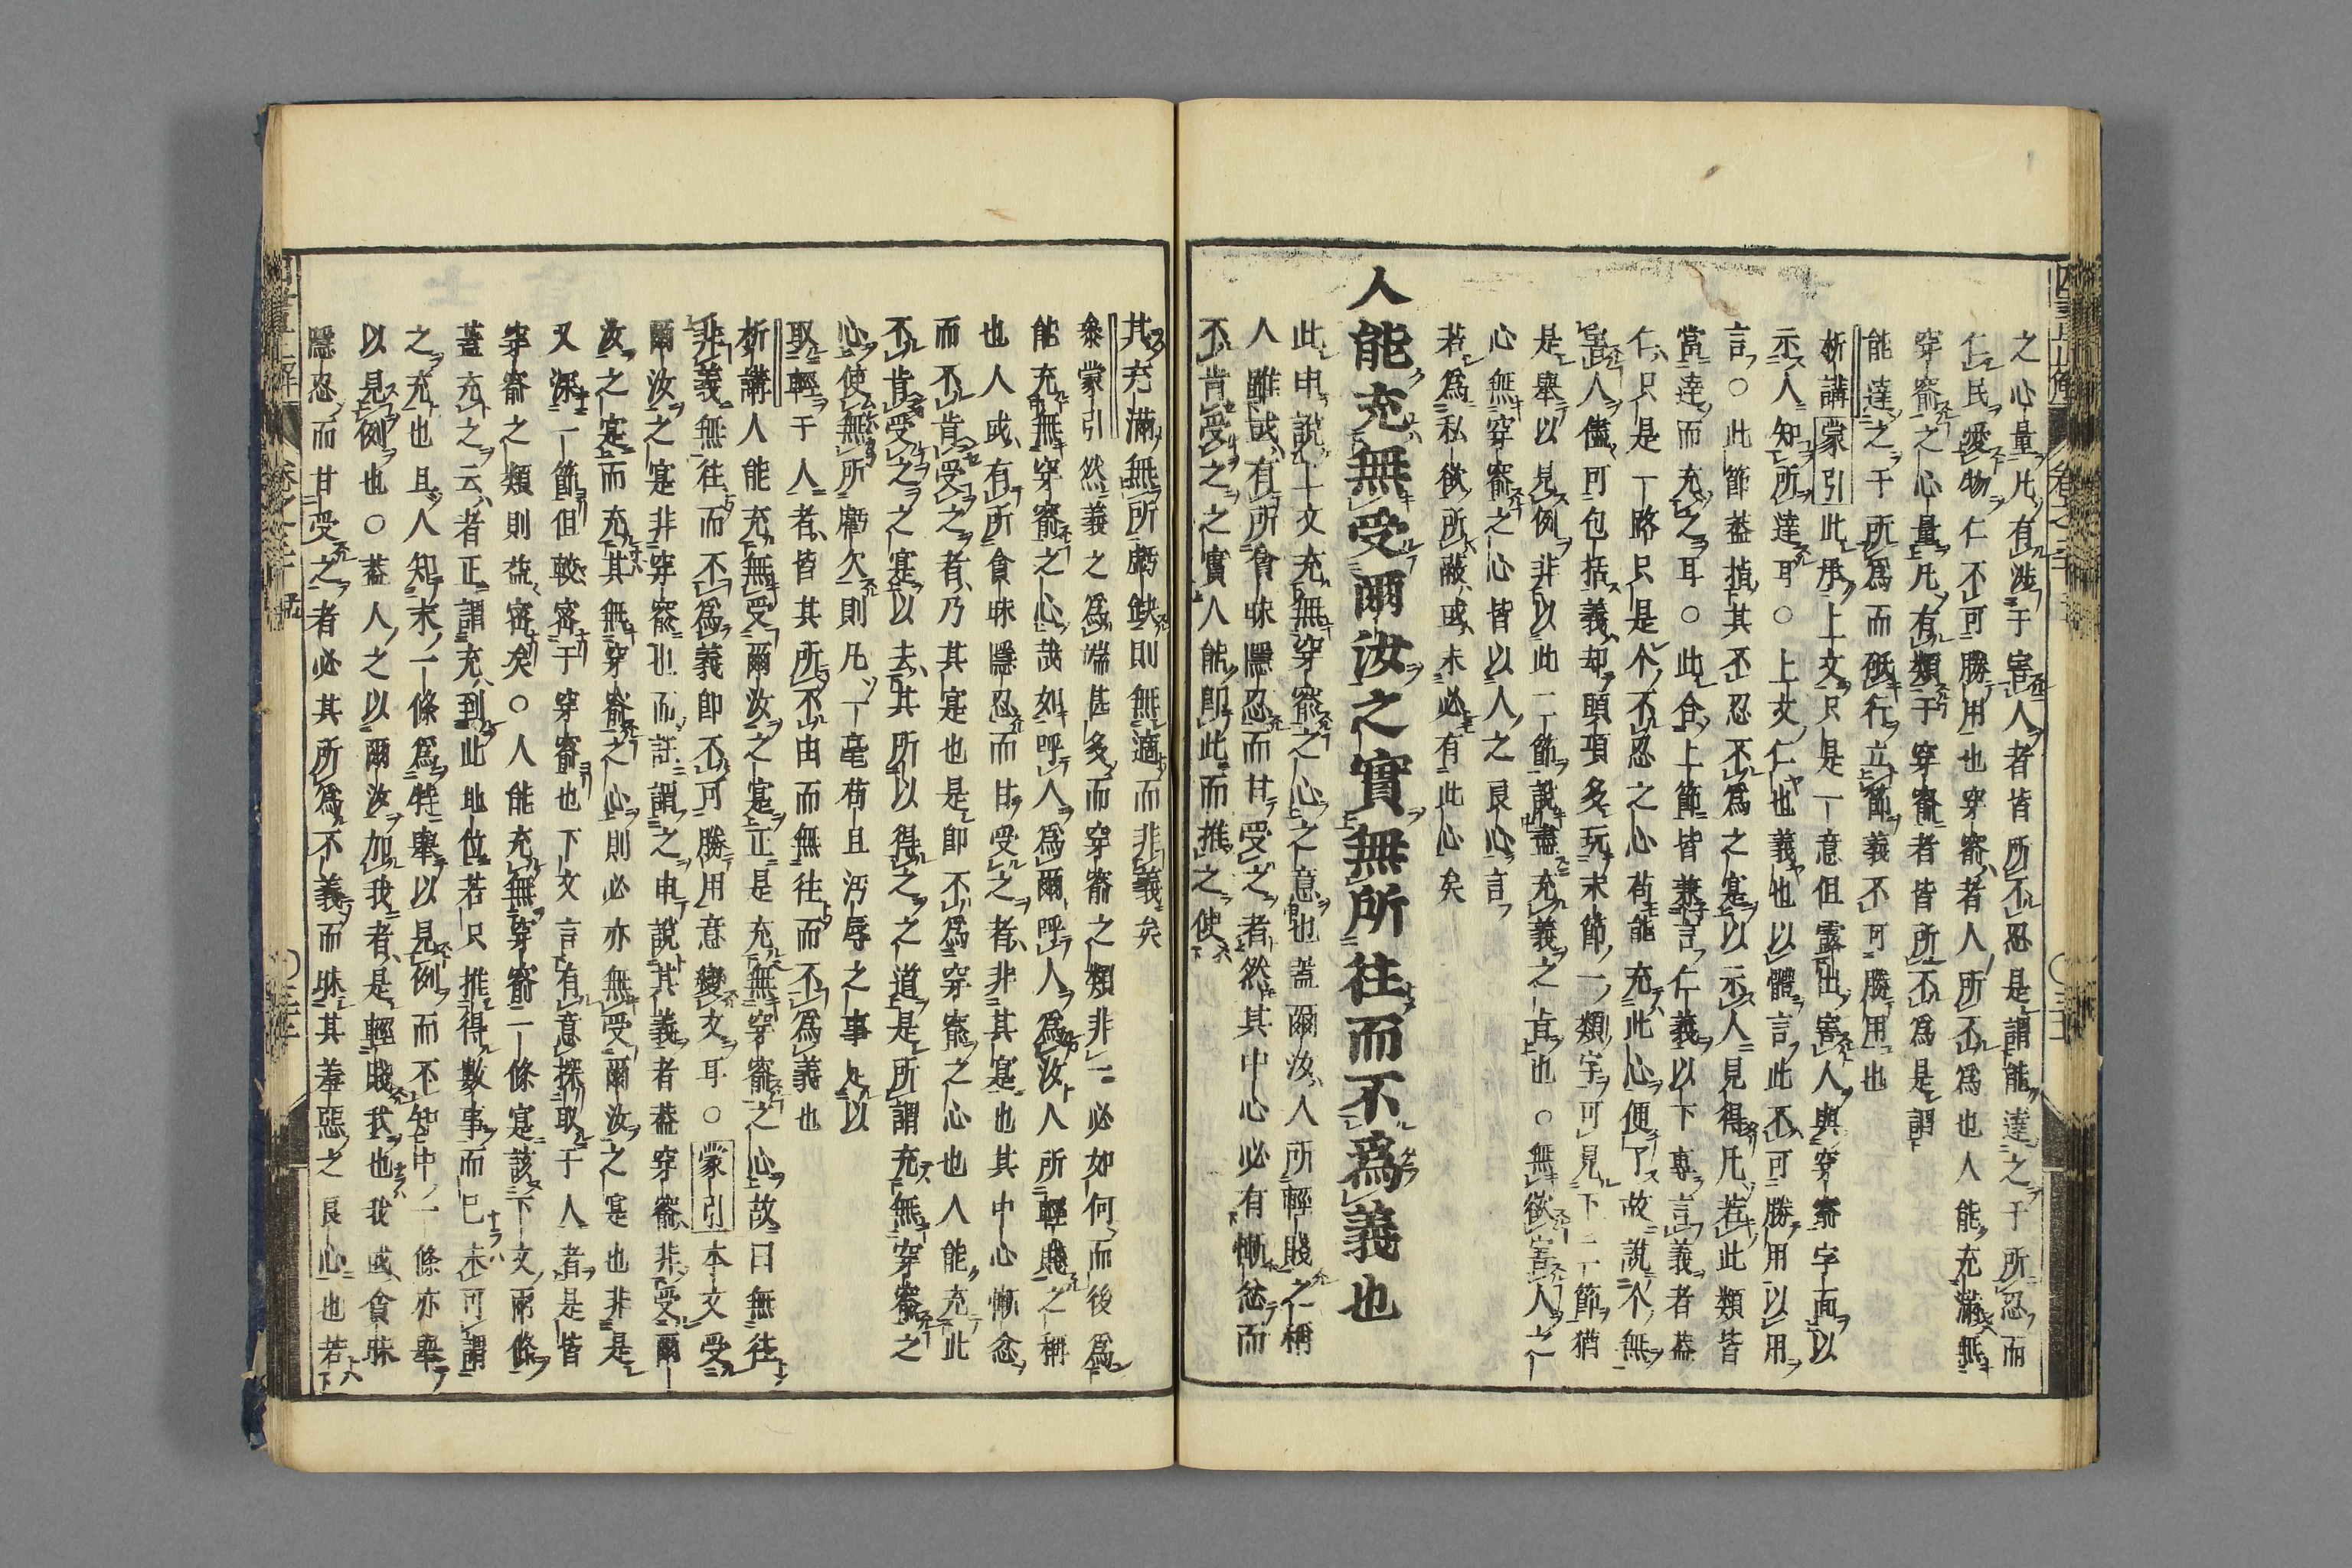 之心量凡有涉于害人者皆所不忍是謂能達之于所忍而
仁民愛物仁不可勝用也穿窬者人所不為也人能充滿無
穿窬之心量凡有類于穿窬者皆所不為是謂
能達之于所為而砥行立節義不可勝用也
析講蒙引此承上上文只是一意但露出害人與穿窬字面以
示人知所達耳○上文仁也義也以體言此不可勝用以用
言○此節蓋指其不忍不為之寔以示人見得凡若此類皆
當達而充之耳○此合上節皆兼言仁義以下專言義者蓋
仁只是一路只是个不忍之心苟能充此心便了故說个無
害人儘可包括義却頭項多玩末節一類字可見下二節猶
是舉以見例非以此二節說盡充義之旨也○無欲害人之
心無穿窬之心皆以人之良心言
若為私欲所蔽或未必有此心矣
人能充無受爾汝之實無所往而不為義也
此申說上文充無穿窬之心之意也蓋爾汝人所輕賤之稱
人雖或有所貪昧隱忍而甘受之者然其中心必有慚忿而
不肯受之之實人能即此而推之使
其充滿無所虧缺則無適而非義矣
叅蒙引然義之為端甚多而穿窬之類非一必如何而後為
能充無穿窬之心哉如呼人為爾呼人為汝人所輕賤之稱
也人或有所貪昧隱忍而甘受之者非其寔也其中心慚忿
而不肯受之者乃其寔也是即不為穿窬之心也人能充此
不肯受之之寔以去其所以得之之道是所謂充無穿窬之
心使無所虧欠則凡一毫苟且污辱之事凡以
取輕于人者皆其所不由而無往而不為義也
析講人能充無受爾汝之寔正是充無穿窬之心故曰無往
非義無往而不為義即不可勝用意變文耳○蒙引本文受
爾汝之寔非穿窬也而註謂之申說其義者蓋穿窬非受爾
汝之寔而充其無穿窬之心則必亦無受爾汝之寔也非是
又深一節但較密于穿窬也下文言有意探取于人者是皆
穿窬之類則益密矣○人能充無穿窬一條寔該下文兩條
蓋充之云者正謂充到此地位若只推得數事而已未可謂
之充也且人知末一條為特舉以見例而不知中一條亦舉
以見例也○蓋人之以爾汝加我者是輕賤我也我或貪昧
隱忍而甘受之者必其所為不義而昧其羞惡之良心也若